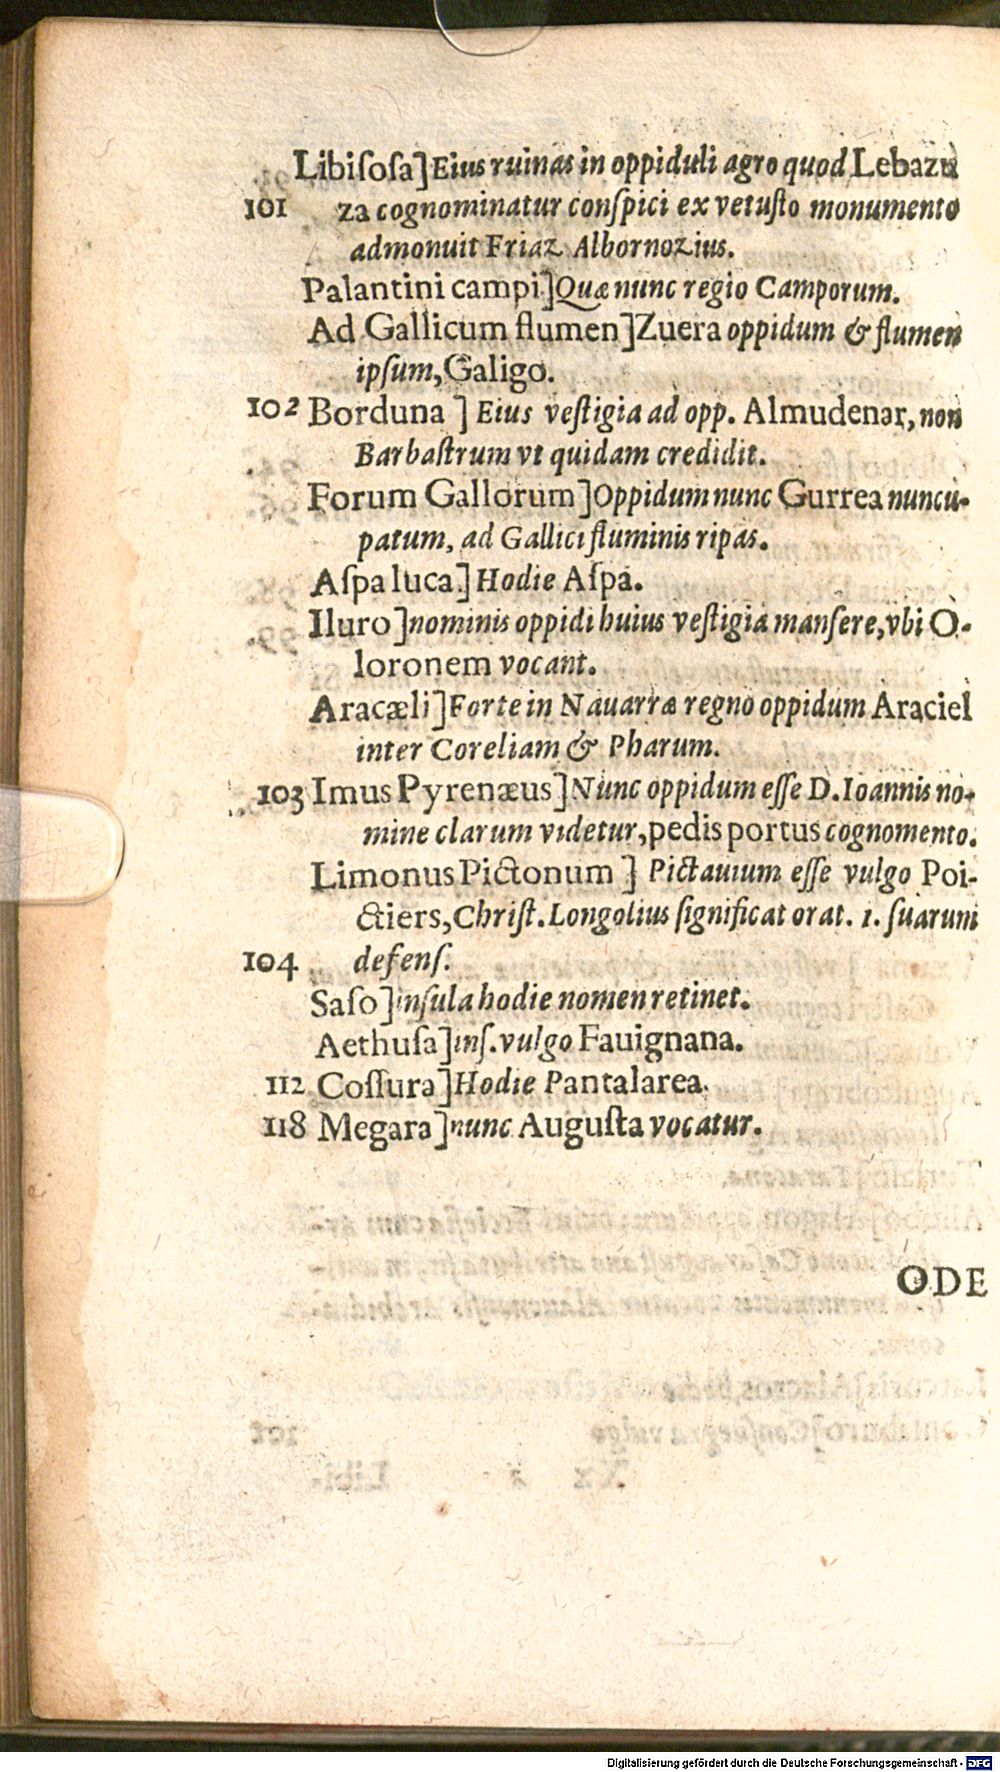 Libiſoſa] Eius ruinas in oppiduli agro quod Lebazu
101 za cognominatur conſpici ex vetuſto monumento
admonuit Friaz Albornozius.
Palantini campi] Quæ nunc regio Camporum.
Ad Gallicum flumen] Zuera oppidum & flumen
ipſum, Galigo.
102 Borduna ] Eius veſtigia ad opp. Almudenar, non
Barbaſtrum vt quidam credidit.
Forum Gallorum] Oppidum nunc Gurrea nuncu-
patum, ad Gallici fluminis ripas.
Aſpa luca] Hodie Aſpa.
Iluro] nominis oppidi huius veſtigia manſere, vbi O-
loronem vocant.
Aracæli] Forte in Nauarræ regno oppidum Araciel
inter Coreliam & Pharum.
103 Imus Pyrenæus] Nunc oppidum eſſe D. Ioannis no-
mine clarum videtur, pedis portus cognomento.
Limonus Pictonum ] Pictauium eſſe vulgo Poi-
ctiers, Chriſt. Longolius ſignificat orat. 1. ſuarum
104 defenſ.
Saſo] inſula hodie nomen retinet.
Aethuſa] inſ. vulgo Fauignana.
112 Coſſura] Hodie Pantalarea.
118 Megara] nunc Auguſta vocatur.
ODE
Digitalisierung gefördert durch die Deutsche Forschungsgemeinschaft - DFG